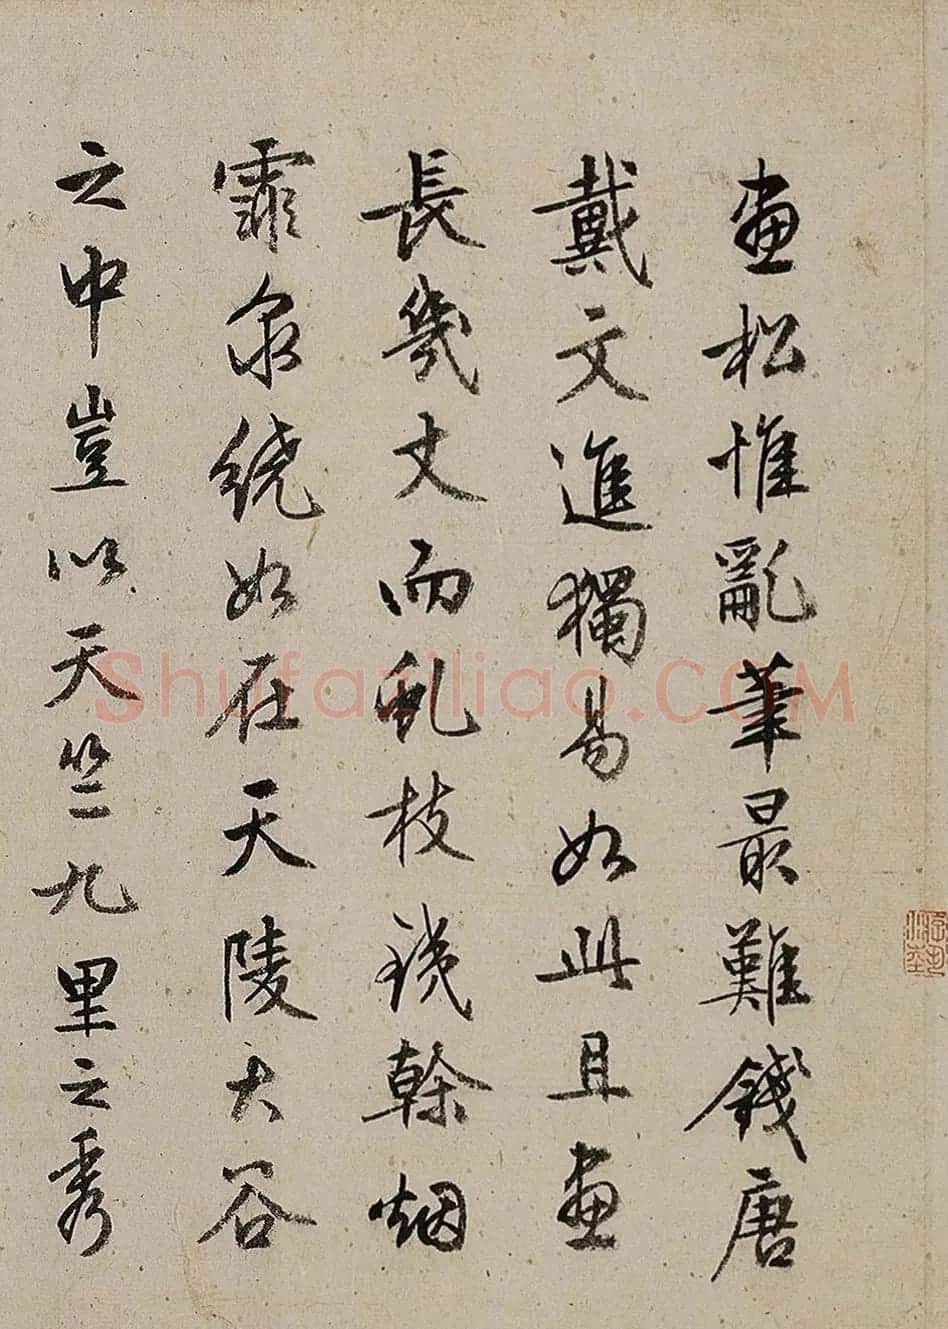 畫松惟亂筆最難錢唐
戴文進獨易如此且畫
長幾丈而乱枝鐵榦烟
霏泉绕如在天陵大谷
之中豈以天竺九里之秀
Shufaziliao.COM